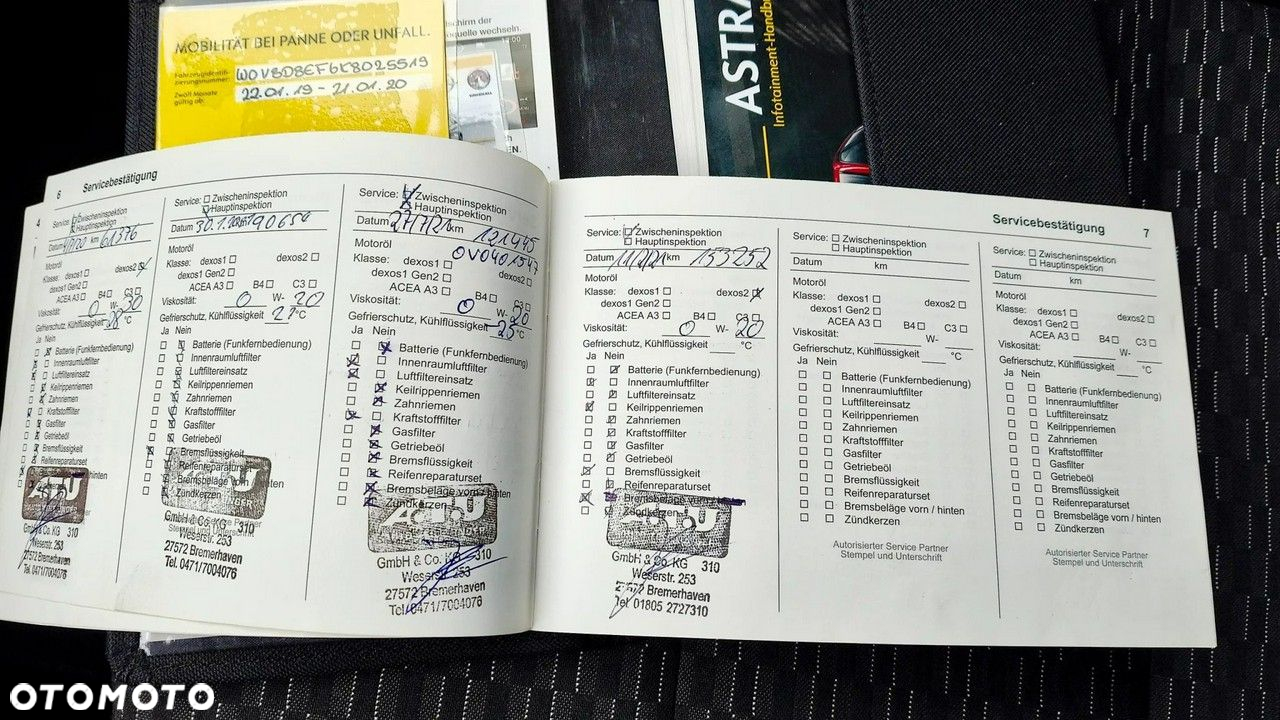 MOBILITÄT BEI PANNE ODER UNFALL.
Fahrzeugidentifi-
zierungsnummer: W0V8D8EF6K8025519
Zwölf Monate
gültig ab: 22.01.19 - 21.01.20
schirm der
quelle wechseln.
ASTRA
Infotainment-Handbu
6 Servicebestätigung
4
Service: Zwischeninspektion
Hauptinspektion
Datum km 61376
Motoröl
Klasse: dexos1 dexos2
dexos1 Gen2
ACEA A3 B4 C3
Viskosität: 0 W- 30
Gefrierschutz, Kühlflüssigkeit 28 °C
Ja Nein
Batterie (Funkfernbedienung)
Innenraumluftfilter
Luftfiltereinsatz
Keilrippenriemen
Zahnriemen
Kraftstofffilter
Gasfilter
Getriebeöl
Bremsflüssigkeit
Reifenreparaturset
hinten
GmbH & Co. KG 310
Weserstr. 253
27572 Bremerhaven
Tel. 0471/7004076
Service: Zwischeninspektion
Hauptinspektion
Datum 90650
Motoröl
Klasse: dexos1 dexos2
dexos1 Gen2
ACEA A3 B4 C3
Viskosität: 0 W- 20
Gefrierschutz, Kühlflüssigkeit 27 °C
Ja Nein
Batterie (Funkfernbedienung)
Innenraumluftfilter
Luftfiltereinsatz
Keilrippenriemen
Zahnriemen
Kraftstofffilter
Gasfilter
Getriebeöl
Bremsflüssigkeit
Reifenreparaturset
Bremsbeläge vorn / hinten
Zündkerzen
GmbH & Co. KG 310
Weserstr. 253
27572 Bremerhaven
Tel. 0471/7004076
Service: Zwischeninspektion
Hauptinspektion
Datum 27/7/21 km 121445
Motoröl 0V0401547
Klasse: dexos1
dexos1 Gen2 dexos2
ACEA A3 B4 C3
Viskosität: 0 W- 20
Gefrierschutz, Kühlflüssigkeit -25 °C
Ja Nein
Batterie (Funkfernbedienung)
Innenraumluftfilter
Luftfiltereinsatz
Keilrippenriemen
Zahnriemen
Kraftstofffilter
Gasfilter
Getriebeöl
Bremsflüssigkeit
Reifenreparaturset
Bremsbeläge vorn / hinten
Zündkerzen
GmbH & Co. KG 310
Weserstr. 253
27572 Bremerhaven
Tel. 0471/7004076
Servicebestätigung 7
Service: Zwischeninspektion
Hauptinspektion
Datum km 153252
Motoröl
Klasse: dexos1 dexos2
dexos1 Gen2
ACEA A3 B4 C3
Viskosität: 0 W- 20
Gefrierschutz, Kühlflüssigkeit °C
Ja Nein
Batterie (Funkfernbedienung)
Innenraumluftfilter
Luftfiltereinsatz
Keilrippenriemen
Zahnriemen
Kraftstofffilter
Gasfilter
Getriebeöl
Bremsflüssigkeit
Reifenreparaturset
Bremsbeläge vorn / hinten
Zündkerzen
GmbH & Co. KG 310
Weserstr. 253
27572 Bremerhaven
Tel. 01805 2727310
Service: Zwischeninspektion
Hauptinspektion
Datum km
Motoröl
Klasse: dexos1 dexos2
dexos1 Gen2
ACEA A3 B4 C3
Viskosität: W-
Gefrierschutz, Kühlflüssigkeit °C
Ja Nein
Batterie (Funkfernbedienung)
Innenraumluftfilter
Luftfiltereinsatz
Keilrippenriemen
Zahnriemen
Kraftstofffilter
Gasfilter
Getriebeöl
Bremsflüssigkeit
Reifenreparaturset
Bremsbeläge vorn / hinten
Zündkerzen
Autorisierter Service Partner
Stempel und Unterschrift
Service: Zwischeninspektion
Hauptinspektion
Datum km
Motoröl
Klasse: dexos1 dexos2
dexos1 Gen2
ACEA A3 B4 C3
Viskosität: W-
Gefrierschutz, Kühlflüssigkeit °C
Ja Nein
Batterie (Funkfernbedienung)
Innenraumluftfilter
Luftfiltereinsatz
Keilrippenriemen
Zahnriemen
Kraftstofffilter
Gasfilter
Getriebeöl
Bremsflüssigkeit
Reifenreparaturset
Bremsbeläge vorn / hinten
Zündkerzen
Autorisierter Service Partner
Stempel und Unterschrift
OTOMOTO